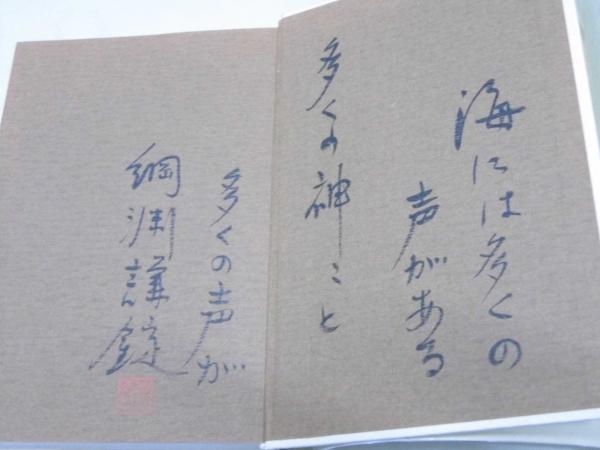 海には多くの
声がある
多くの神こと
多くの声が
綱淵謙錠